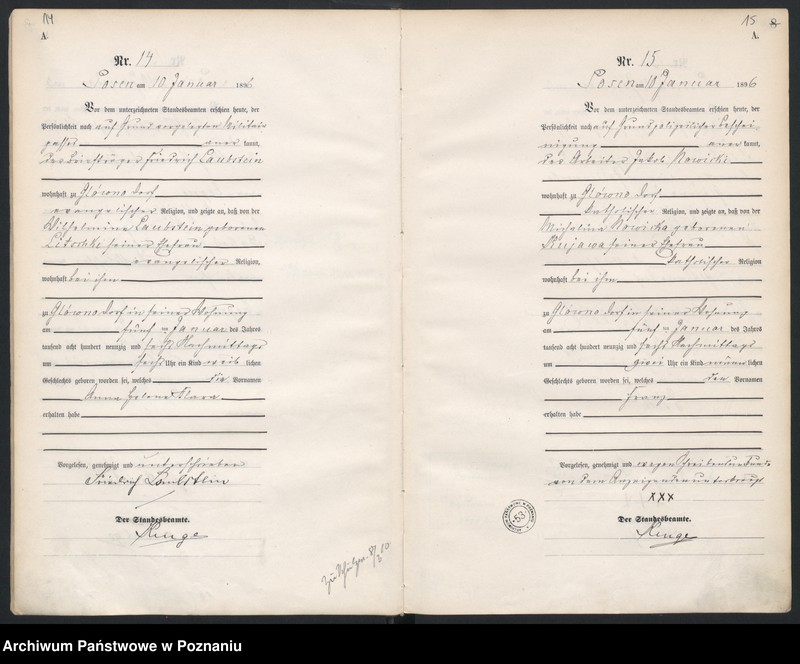 14
A.
Nr. 14
Posen am 10 Januar 1896
Vor dem unterzeichneten Standesbeamten erschien heute, der
Persönlichkeit nach auf Grund vorgelegten Militär
passes aner kannt,
der Briefträger Friedrich Laubstein
wohnhaft zu Glówno Dorf
evangelischer Religion, und zeigte an, daß von der
Wilhelmine Laubstein geborenen
seiner Ehefrau
evangelischer Religion,
wohnhaft bei ihm
zu Glówno Dorf in seiner Wohnung
am fünf ten Januar des Jahres
tausend acht hundert neunzig und sechs Nachmittags
um sechs Uhr ein Kind weib lichen
Geschlechts geboren worden sei, welches die Vornamen
Anna Helene Klara
erhalten habe
Vorgelesen, genehmigt und unterschrieben
Friedrich Laubstein
Der Standesbeamte.
15
8
A.
Nr. 15
Posen am 10 Januar 1896
Vor dem unterzeichneten Standesbeamten erschien heute, der
Persönlichkeit nach auf Grund polizeilicher Beschei-
nigung aner kannt,
der Arbeiter Jakob Nowicki
wohnhaft zu Glówno Dorf
katholischer Religion, und zeigte an, daß von der
Michalina Nowicka geborenen
Kujawa seiner Ehefrau
katholischer Religion
wohnhaft bei ihm
zu Glówno Dorf in seiner Wohnung
am fünf ten Januar des Jahres
tausend acht hundert neunzig und sechs Nachmittags
um zwei Uhr ein Kind männ lichen
Geschlechts geboren worden sei, welches den Vornamen
Franz
erhalten habe
Vorgelesen, genehmigt und wegen Schreibensunkunde
von dem Anzeigenden unterkreuzt
XXX
Der Standesbeamte.
53
Archiwum Państwowe w Poznaniu